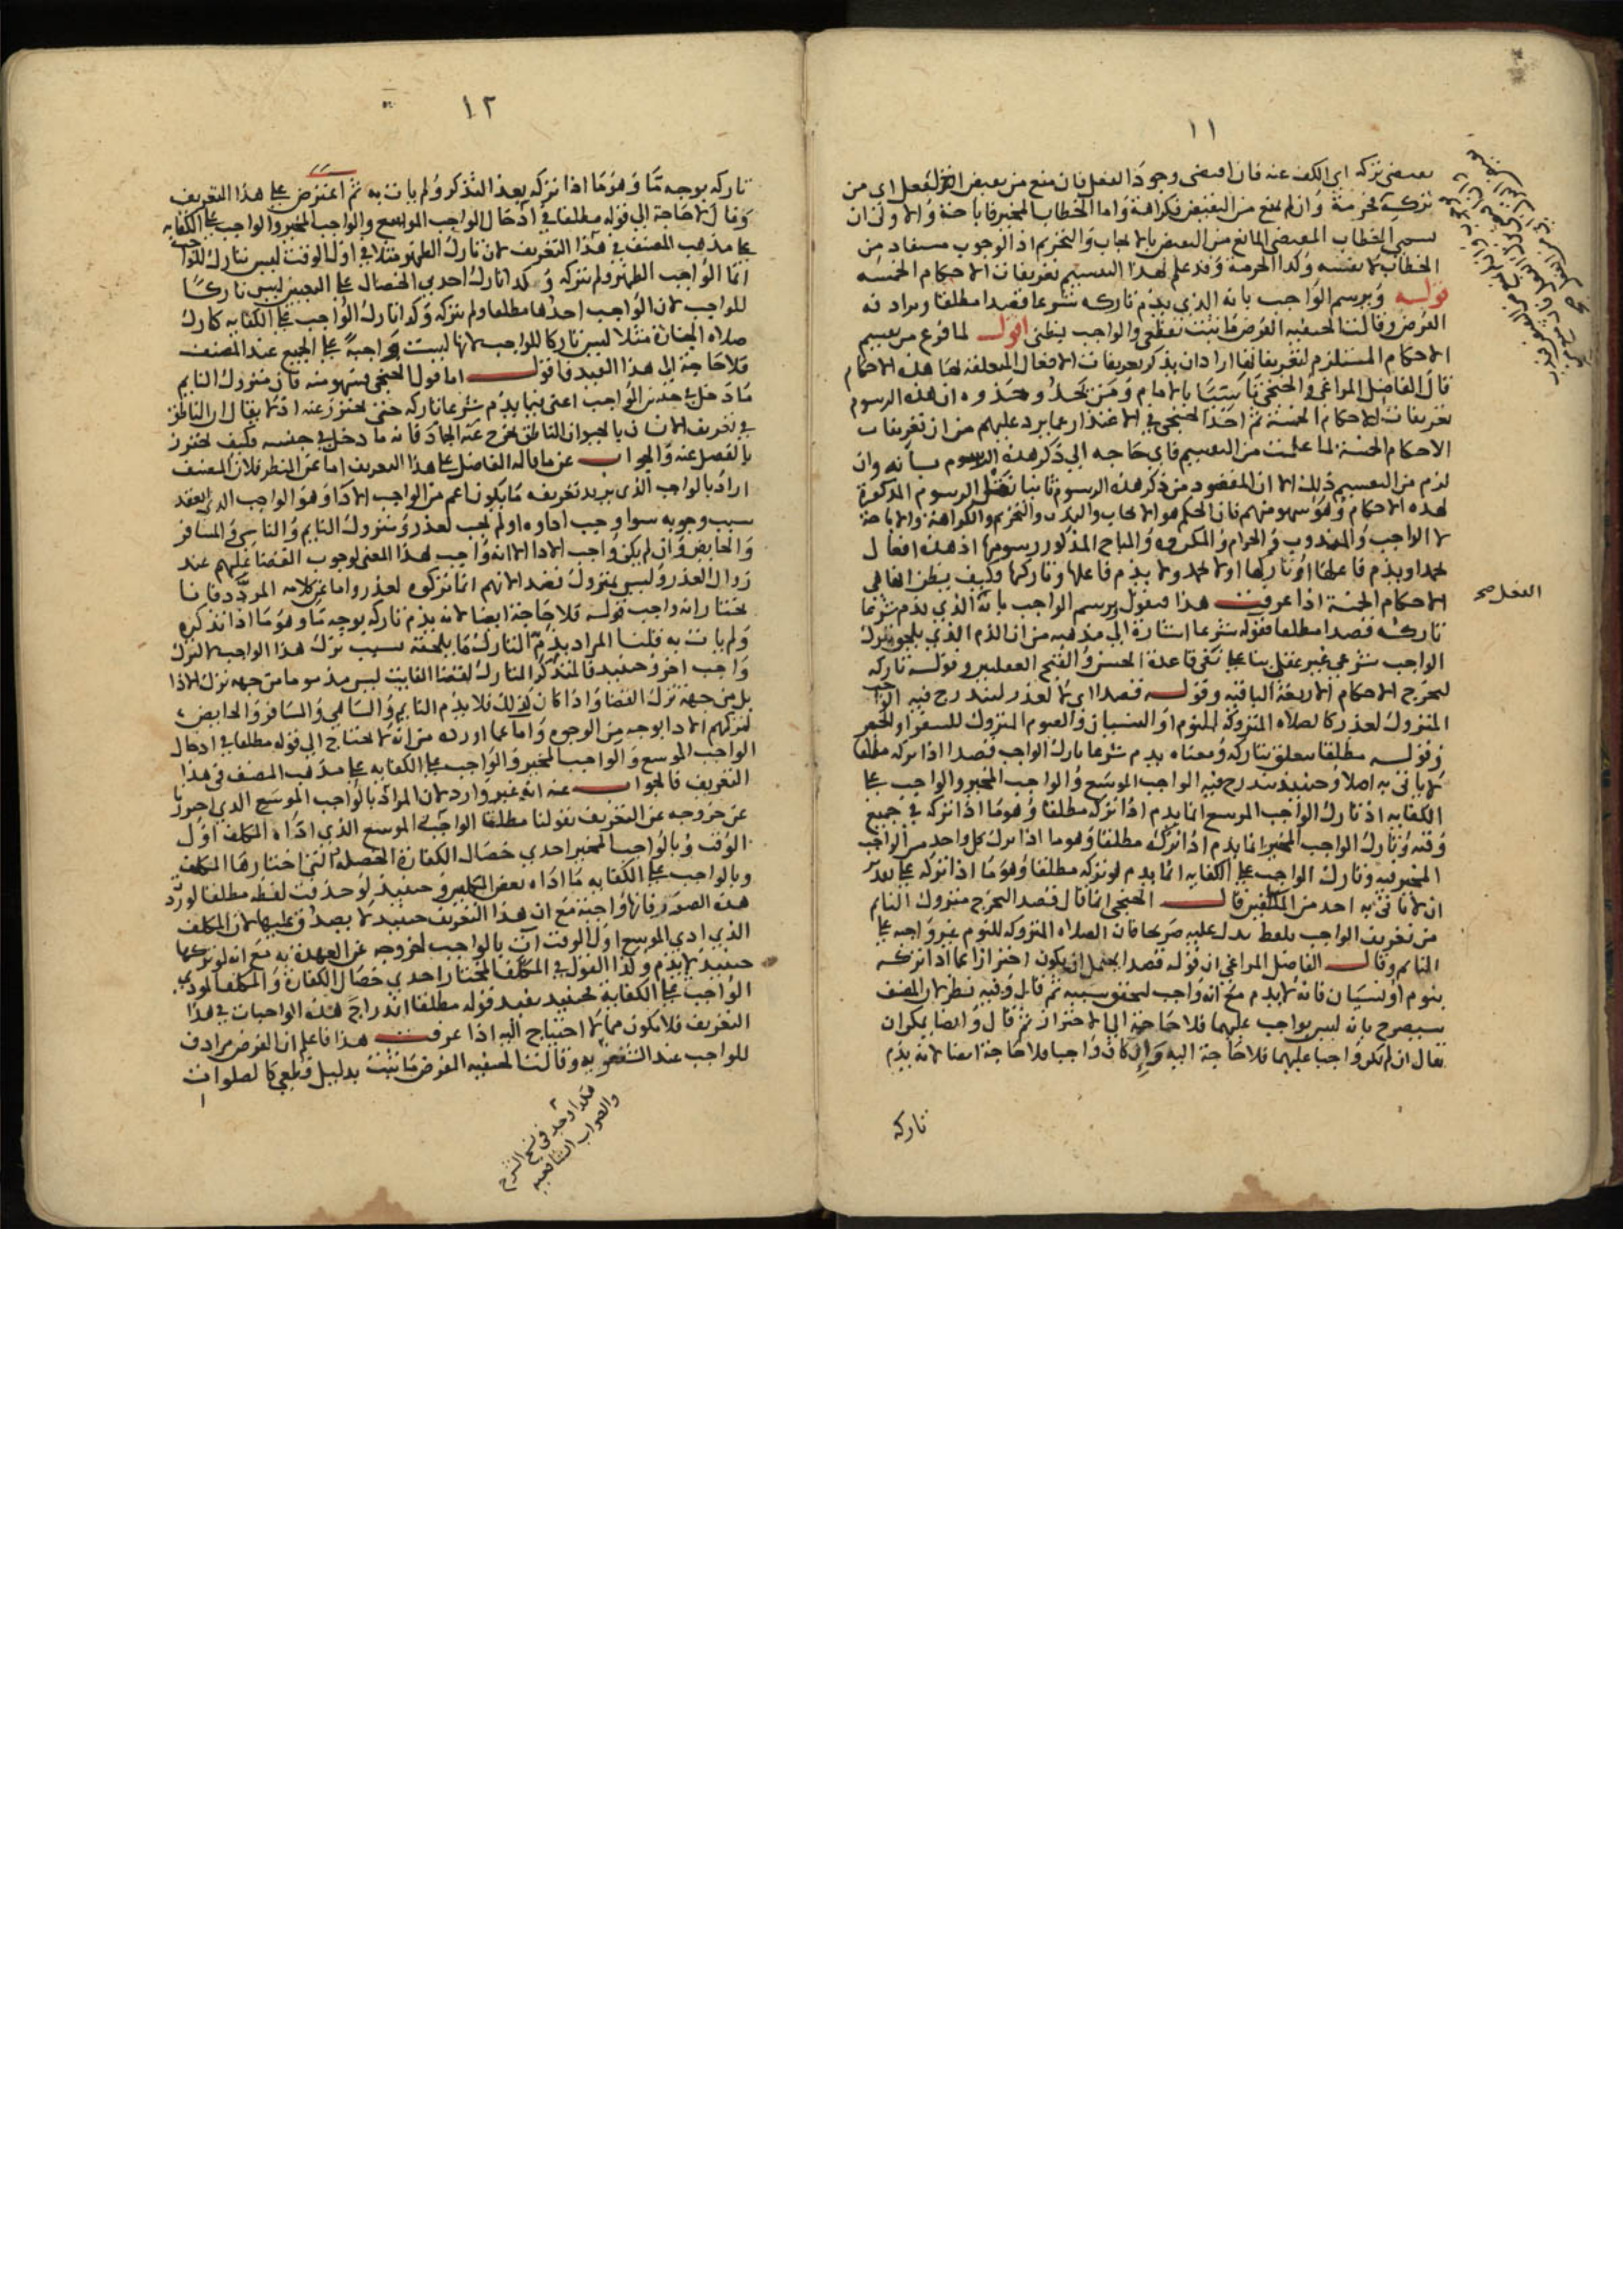 ١١
يقتضي تركه اي الكف عنه فان اقتضى وجود الفعل فان منع من نقيض الفعل اي من
تركه فحرمة وان لم يمنع من النقيض فكراهة واما الخطاب المخير فاباحة والاولى ان
يسمى الخطاب المقتضي المانع من النقيض بالايجاب والتحريم اذ الوجوب مستفاد من
الخطاب لا نفسه وكذا الحرمة وقد علم بهذا التقسيم تعريفات الاحكام الخمسه
قوله ويرسم الواجب بانه الذي يذم تاركه شرعا قصدا مطلقا ويرادفه
الفرض وقالت الحنفيه الفرض ما ثبت بقطعي والواجب بظني اقول لما فرغ من تقسيم
الاحكام المستلزم لتعريفاتها اراد ان يذكر تعريفات الافعال المتعلقة لها هذه الاحكام
قال الفاضل المراغي والخنجي تاسيا بالامام ومن يحذو حذوه ان هذه الرسوم
تعريفات الاحكام الخمسة ثم اخذ الخنجي في الاعتذار عما يرد عليهم من ان تعريفات
الاحكام الخمسة لما علمت من التقسيم فاي حاجه الي ذكر هذه الرسوم بانه وان
لزم من التقسيم ذلك الا ان المقصود من ذكر هذه الرسوم ثانيا الرسوم المذكورة
لهذه الاحكام وهو سهو منهم فان الحكم هو الايجاب والندب والتحريم والكراهة والاباحة
لا الواجب والمندوب والحرام والمكروه والمباح المذكور رسومها اذ هذه افعال
يحمد او يذم فاعلها او تاركها او لا يحمد ولا يذم فاعلها وتاركها فكيف يظن انها هي
الاحكام الخمسة اذا عرفت هذا فنقول يرسم الواجب بانه الذي يذم شرعا
تاركه قصدا مطلقا فقوله شرعا اشارة الي مذهبه من ان الذم الذي يلحق بترك
الواجب شرعي غير عقلي بنا على نفي قاعدة الحسن والقبح العقليين وقوله تاركه
ليخرج الاحكام الاربعة الباقيه وقوله قصدا اي لا لعذر ليندرج فيه الواجب
المتروك لعذر كالصلاه المتروكة للنوم او النسيان والصوم المتروك للسفر او الحيض
وقوله مطلقا متعلق بتاركه ومعناه يذم شرعا تارك الواجب قصدا اذا تركه مطلقا
لا ياتي به اصلا وحينئذ يندرج فيه الواجب الموسع والواجب المخير والواجب على
الكفايه اذ تارك الواجب الموسع انما يذم اذا تركه مطلقا وهو ما اذا تركه في جميع
وقته وتارك الواجب المخير انما يذم اذا تركه مطلقا وهو ما اذا ترك كل واحد من الواجب
المخير فيه وتارك الواجب على الكفايه انما يذم لو تركه مطلقا وهو ما اذا تركه على تقدير
ان لا ياتي به احد من المكلفين قال الخنجي انما قال قصدا ليخرج متروك النائم
من تعريف الواجب بلفظ يدل عليه صريحا فان الصلاه المتروكه للنوم غير واجبه على
النائم وقال الفاضل المراغي ان قوله قصدا يحتمل ان يكون احترازا عما اذا تركه
بنوم او نسيان فانه لا يذم مع انه واجب لتحقق سببه ثم قال وفيه نظر لان المصنف
سيصرح بانه ليس بواجب عليهما فلا حاجة الي الاحتراز ثم قال وايضا يمكن ان
يقال ان لم يكن واجبا عليهما فلا حاجة اليه وان كان واجبا فلا حاجة ايضا لانه يذم
تاركه
الفعل صح
١٢
تاركه بوجه ما وهو ما اذا تركه بعد التذكر ولم يات به ثم اعترض على هذا التعريف
وقال لا حاجة الي قوله مطلقا في ادخال الواجب الموسع والواجب المخير والواجب على الكفايه
على مذهب المصنف في هذا التعريف لان تارك الظهر مثلا في اول الوقت ليس بتارك للواجب
انما الواجب الظهر ولم يتركه وكذا تارك احدي الخصال على التعيين ليس تاركا
للواجب لان الواجب احدها مطلقا ولم يتركه وكذا تارك الواجب على الكفايه كتارك
صلاه الجنازة مثلا ليس تاركا للواجب لانها ليست واجبة على الجميع عند المصنف
فلا حاجة الى هذا القيد فاقول اما قول الخنجي فسهو منه فان متروك النائم
ما دخل في حد الواجب اعني بما يذم شرعا تاركه حتى يحترز عنه اذ لا يقال ان الناطق
في تعريف الانسان بالحيوان الناطق يخرج عنه الجماد فانه ما دخل في جنسه فكيف يحترز
بالفصل عنه والجواب عن ما قاله الفاضل على هذا التعريف اما عن النظر فلان المصنف
اراد بالواجب الذي يريد تعريفه ما يكون اعم من الواجب الادا وهو الواجب الذي انعقد
سبب وجوبه سوا وجب اداوه او لم يجب لعذر ومتروك النايم والناسي والمسافر
والحايض وان لم يكن واجب الادا الا انه واجب بهذا المعنى لوجوب القضا عليهم عند
زوال العذر وليس بمتروك قصدا لانهم انما تركوه لعذر واما عن كلامه المردد فانا
نختار انه واجب قوله فلا حاجة ايضا لانه يذم تاركه بوجه ما وهو ما اذا تذكره
ولم يات به قلنا المراد بذم التارك ما يلحقه بسبب ترك هذا الواجب لا بترك
واجب اخر وحينئذ فالمتذكر التارك لقضا الفايت ليس مذموما من جهة ترك الادا
بل من جهة ترك القضا واذا كان كذلك فلا يذم النايم والساهي والمسافر والحايض
لتركهم الادا بوجه من الوجوه واما عما اورده من انه لا يحتاج الي قوله مطلقا في ادخال
الواجب الموسع والواجب المخير والواجب على الكفايه على مذهب المصنف في هذا
التعريف فالجواب عنه انه غير وارد لان المراد بالواجب الموسع الذي احترزنا
عن خروجه عن التعريف بقولنا مطلقا الواجب الموسع الذي اداه المكلف اول
الوقت وبالواجب المخير احدي خصال الكفارة الخصلة التي اختارها المكلف
وبالواجب على الكفايه ما اداه بعض المكلفين وحينئذ لو حذفت لفظه مطلقا لورد
هذه الصور فانها واجبة مع ان هذا التعريف حينئذ لا يصدق عليها لان المكلف
الذي ادي الموسع اول الوقت ات بالواجب لخروجه عن العهدة به مع انه لو تركها
حينئذ لا يذم وكذا القول في المكلف المختار احدي خصال الكفارة والمكلف المودي
الواجب على الكفاية فحينئذ يفيد قوله مطلقا اندراج هذه الواجبات في هذا
التعريف فلا يكون مما لا احتياج اليه اذا عرفت هذا فاعلم ان الفرض مرادف
للواجب عند وقالت الحنفيه الفرض ما ثبت بدليل قطعي كالصلوات
هكذا وجد في نسخ الشرح
والصواب الشافعيه